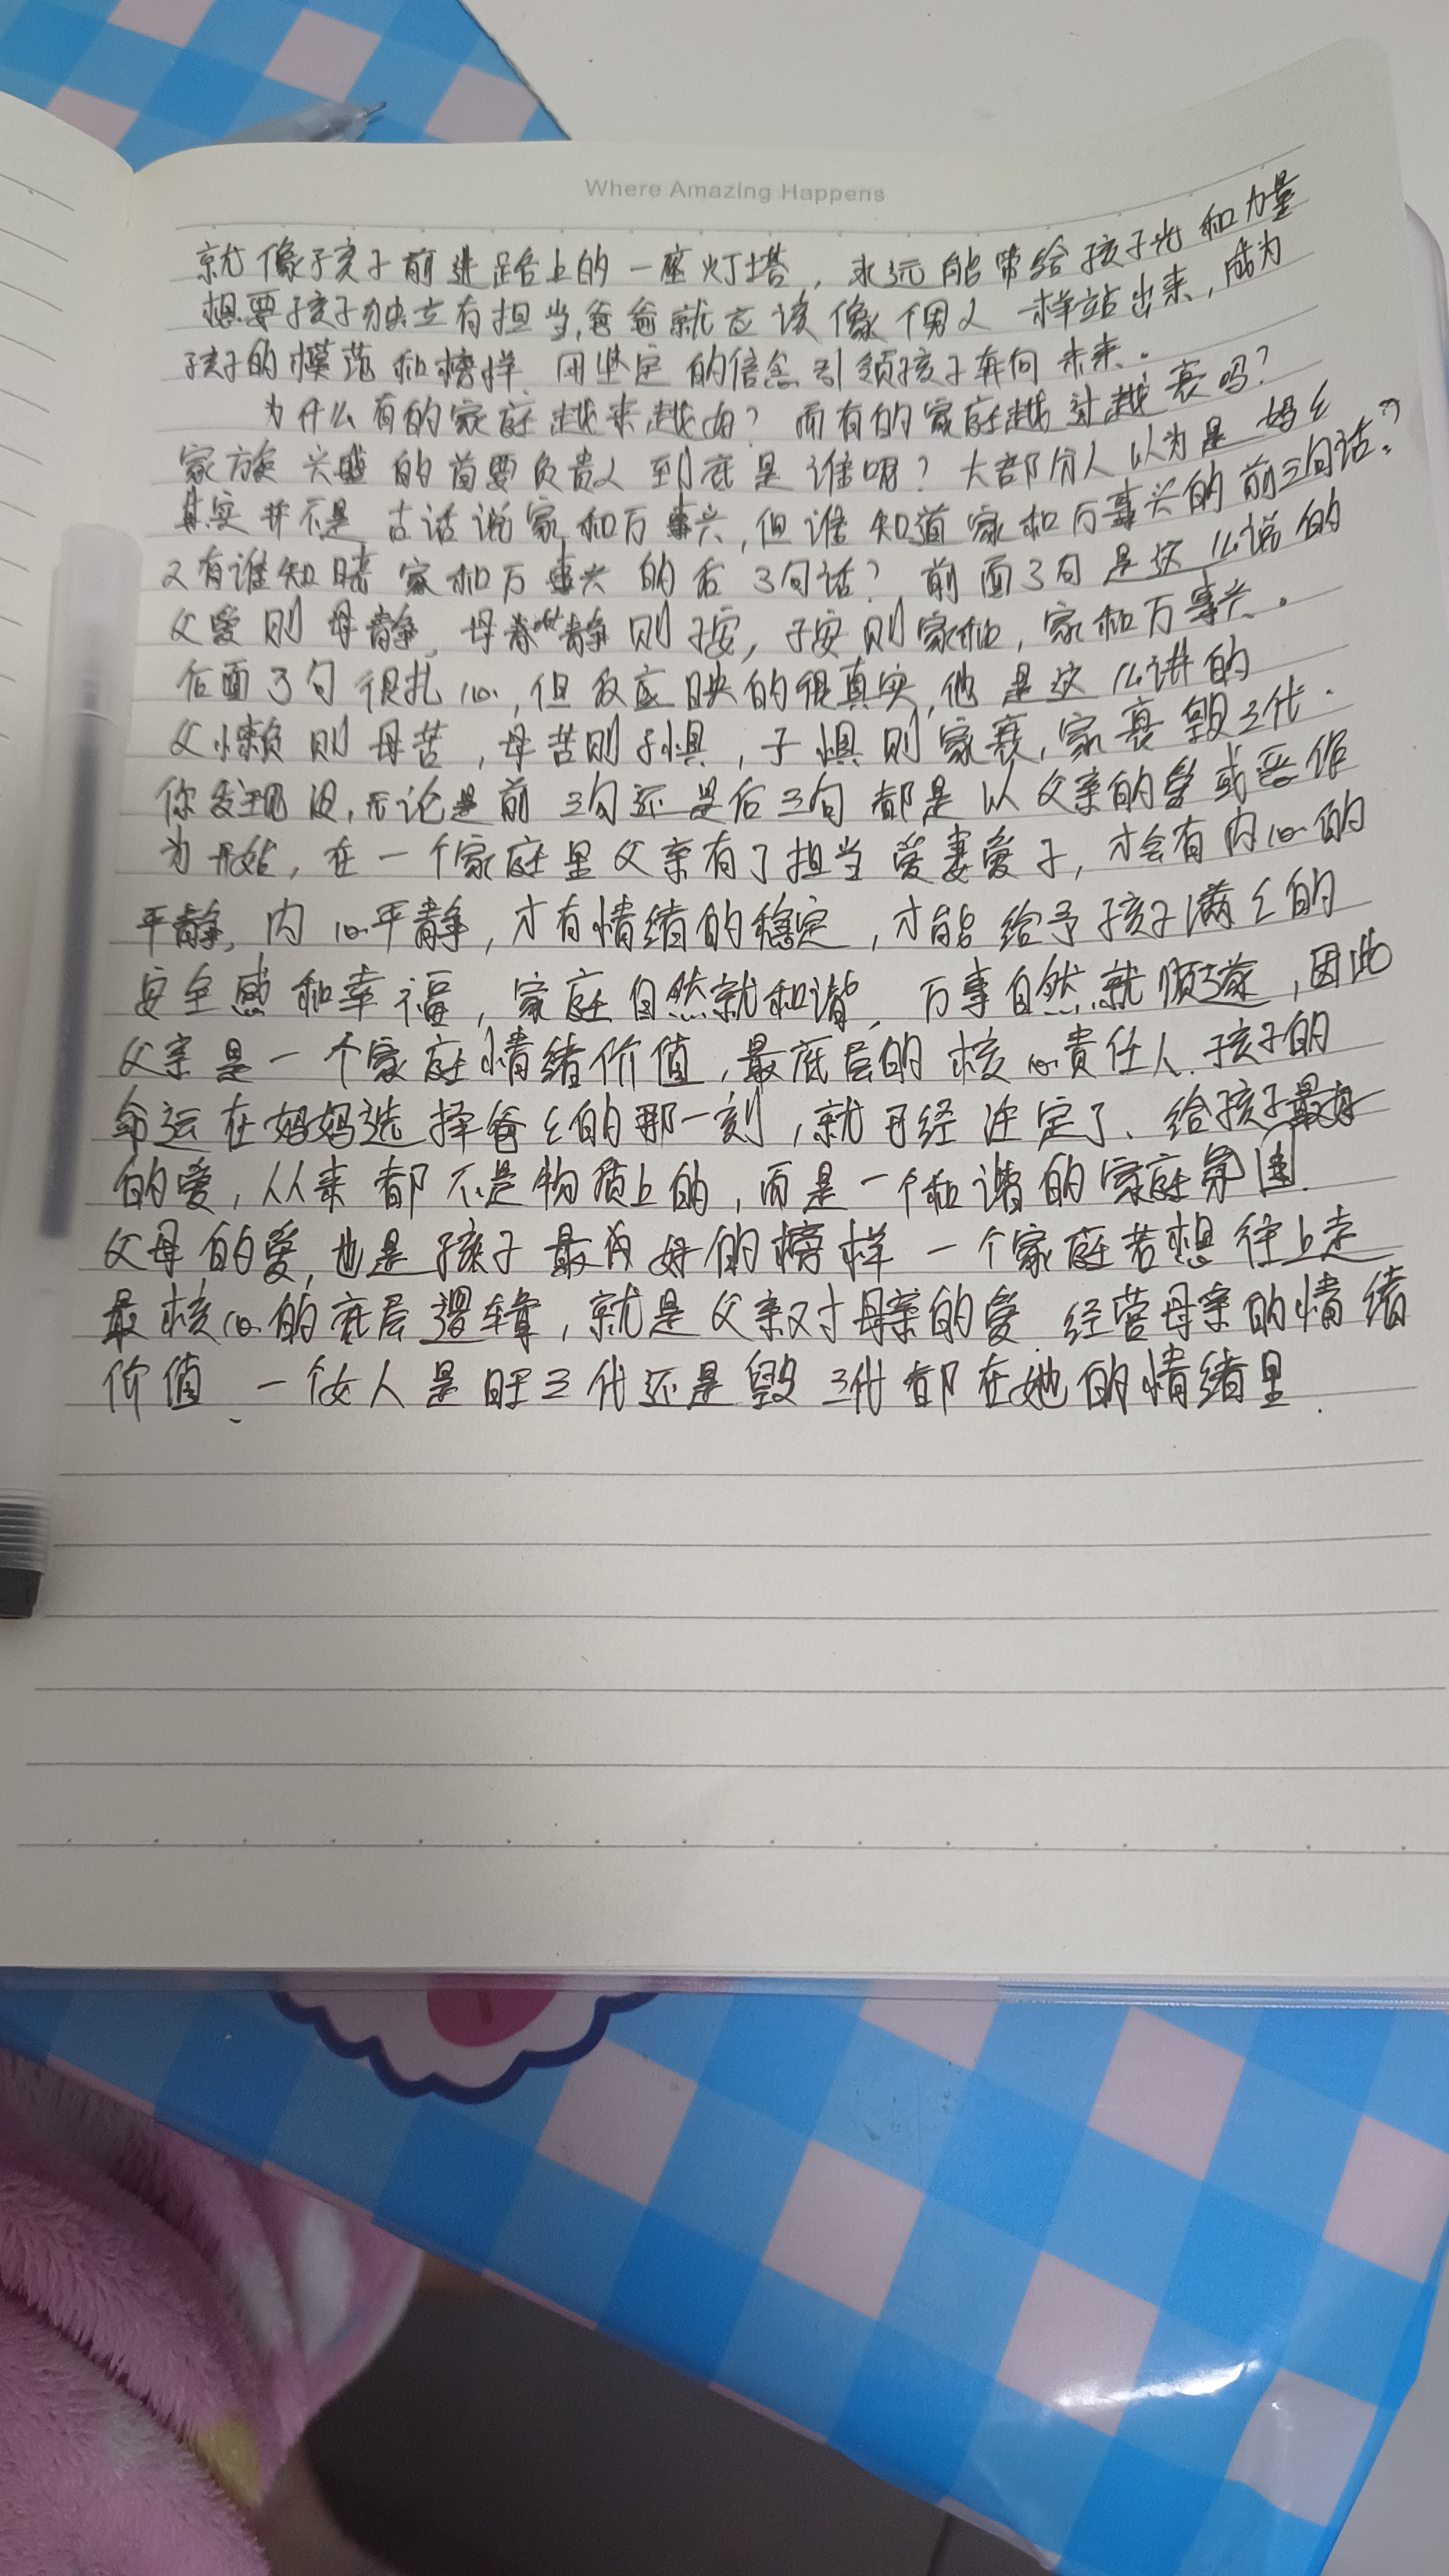 Where Amazing Happens
就像孩子前进路上的一座灯塔，永远能带给孩子光和力量
想要孩子独立有担当，爸爸就应该像个男人一样站出来，成为
孩子的模范和榜样，用坚定的信念引领孩子奔向未来。
为什么有的家庭越来越旺？而有的家庭越过越衰吗？
家族兴盛的首要负责人到底是谁呢？大部分人以为是妈々
其实并不是 古话说家和万事兴，但谁知道家和万事兴的前三句话？
又有谁知晓家和万事兴的后3句话？前面3句是这么说的
父爱则母静，母静则子安，子安则家和，家和万事兴。
后面3句很扎心，但反应映的很真实，他是这么讲的
父懒则母苦，母苦则子惧，子惧则家衰，家衰毁3代．
你发现没，无论是前三句还是后三句都是以父亲的爱或恶作
为开始，在一个家庭里父亲有了担当爱妻爱子，才会有内心的
平静，内心平静，才有情绪的稳定，才能给予孩子满々的
安全感和幸福，家庭自然就和谐，万事自然就顺遂，因此
父亲是一个家庭情绪价值，最底层的核心责任人．孩子的
命运在妈妈选择爸々的那一刻，就已经注定了、给孩子最好
的爱，从来都不是物质上的，而是一个和谐的家庭氛围．
父母的爱，也是孩子最好的榜样 一个家庭若想往上走
最核心的底层逻辑，就是父亲对母亲的爱．经营母亲的情绪
价值、一个女人是旺三代还是毁3代都在她的情绪里．